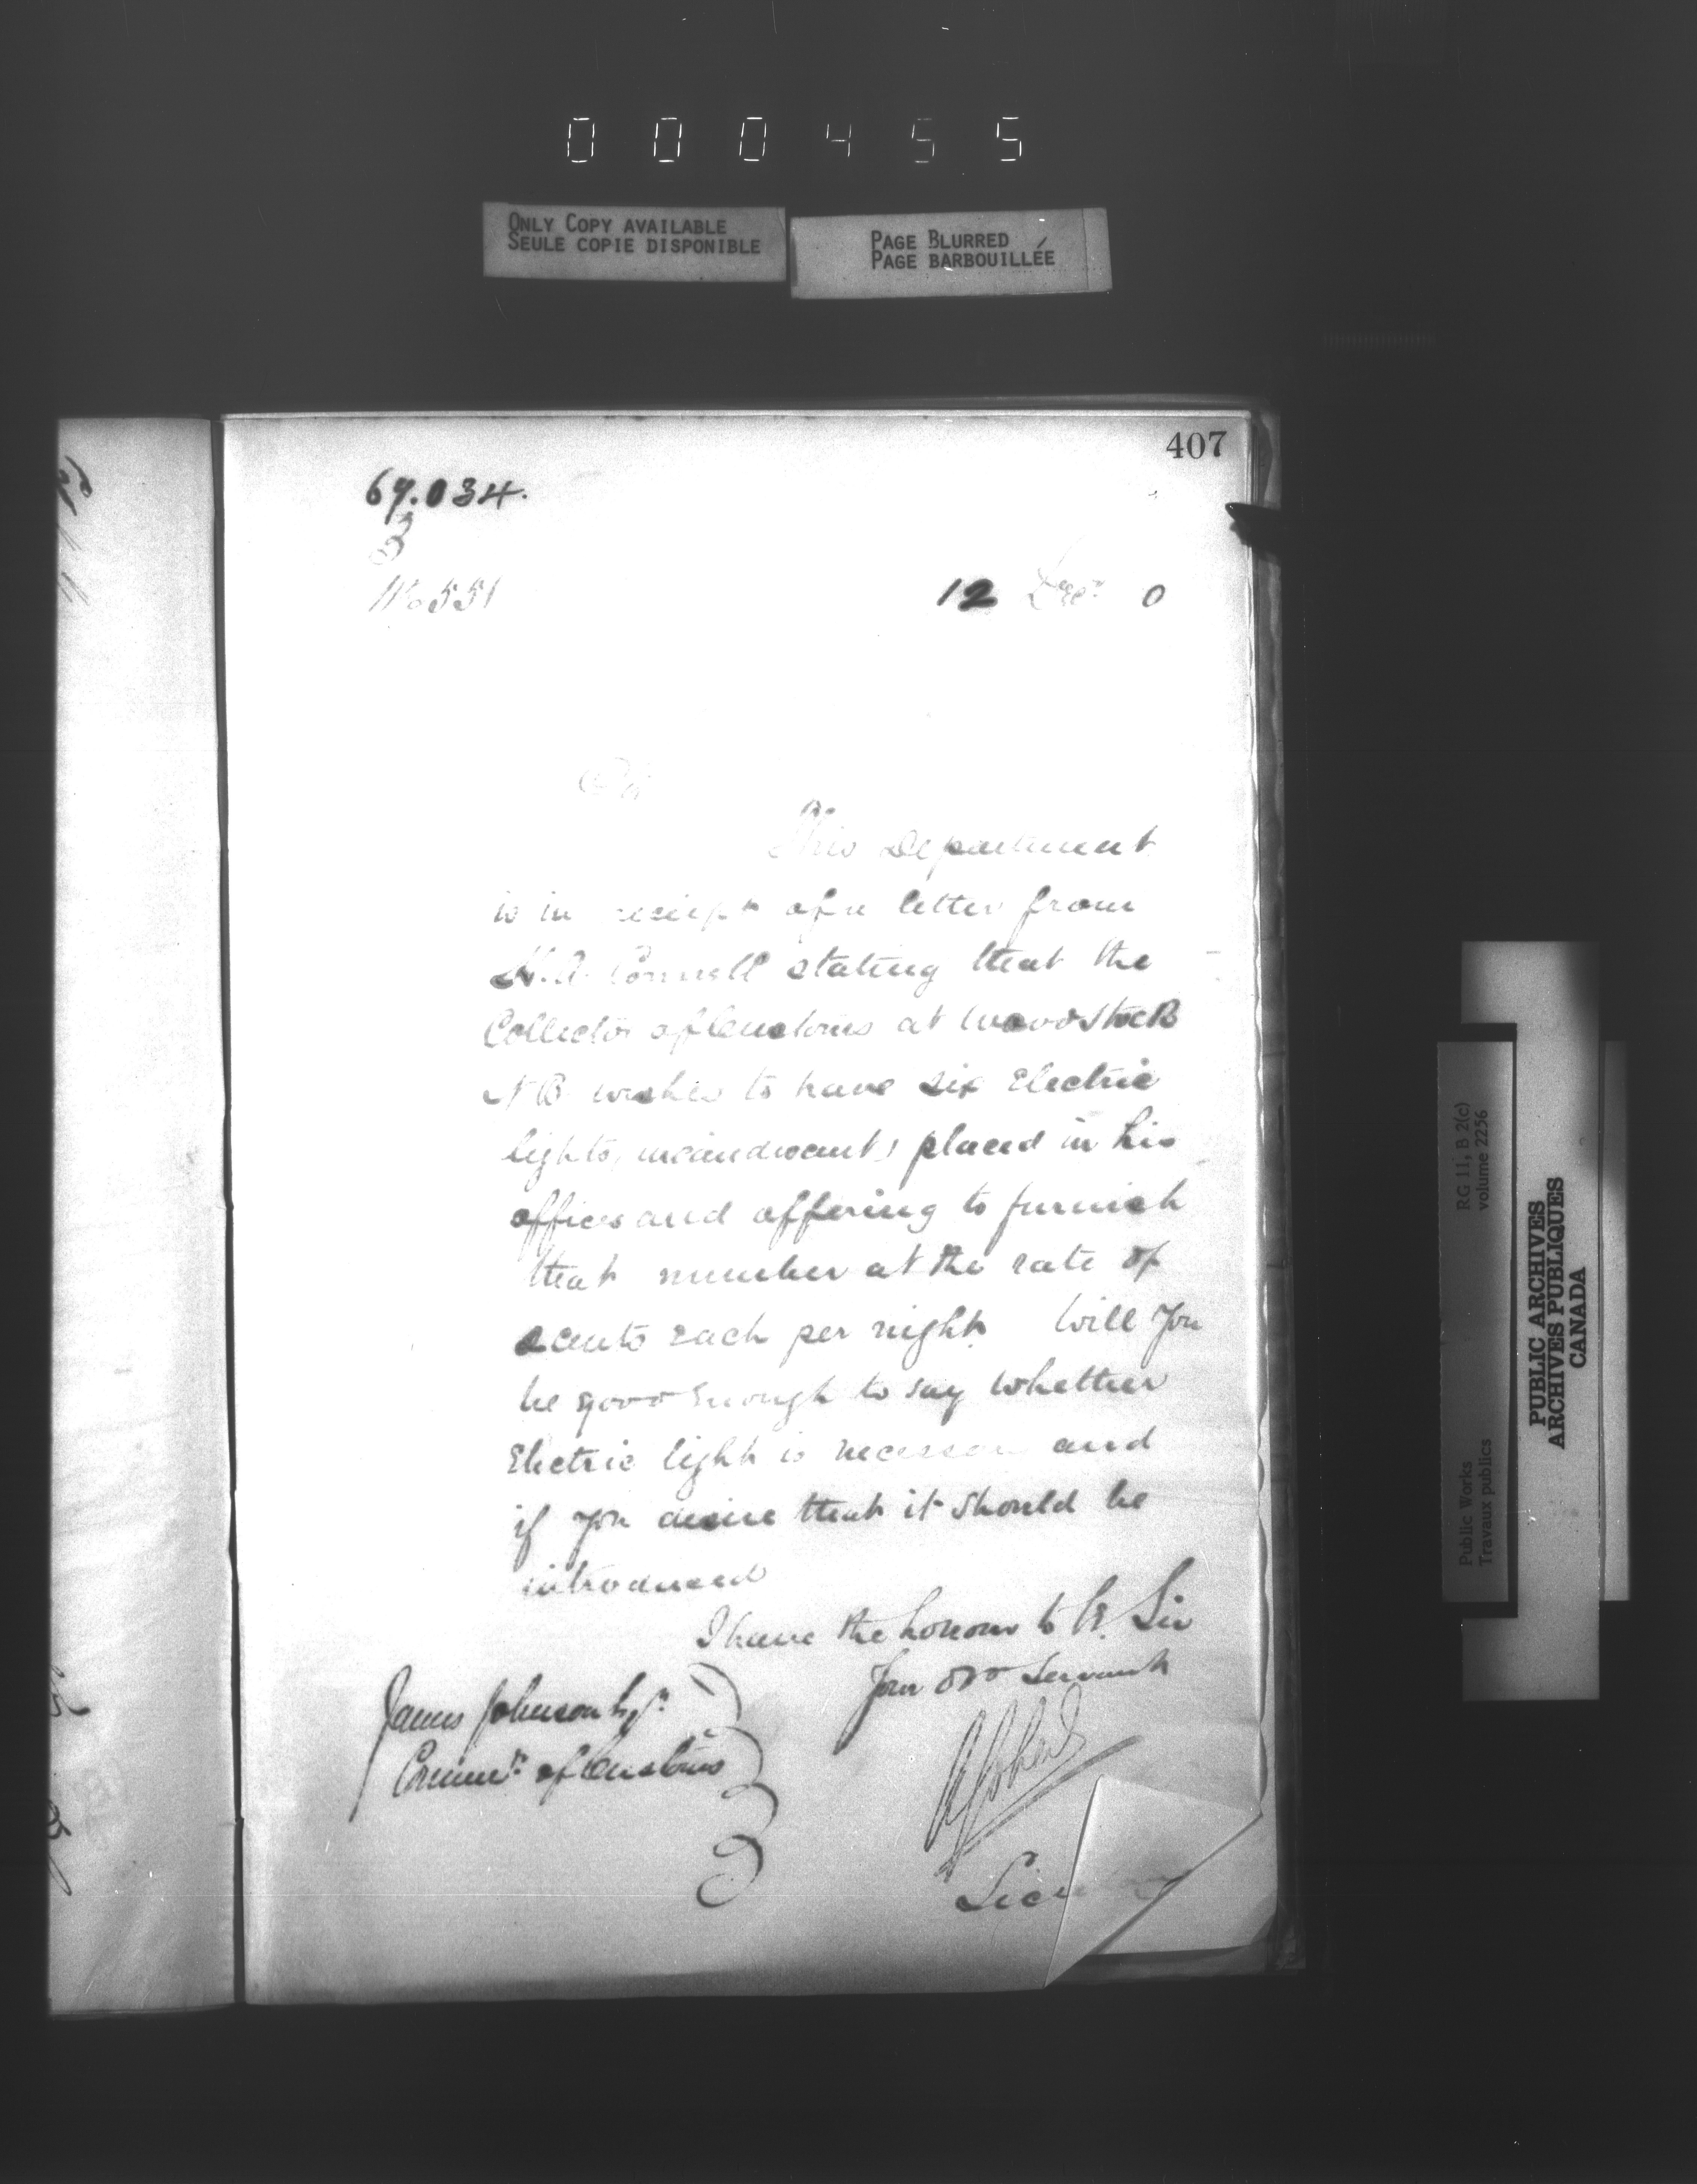 000455
ONLY COPY AVAILABLE
SEULE COPIE DISPONIBLE
PAGE BLURRED
PAGE BARBOUILLÉE
407
69.034.
3
No 551
12 Decr 0
Sir
This Department
is in receipt of a letter from
Connell stating that the
Collector of Customs at Woodstock
N B wishes to have six Electric
lights, incandescent, placed in his
offices and offering to furnish
that number at the rate of
cents each per night. Will you
be good enough to say whether
Electric light is necessary and
if you desire that it should be
introduced
I have the honour to be, Sir
Your Obt Servant
James Johnson Esqr.
Commr. of Customs
Secretary
PUBLIC ARCHIVES
ARCHIVES PUBLIQUES
CANADA
Public Works RG 11, B 2(c)
Travaux publics volume 2256